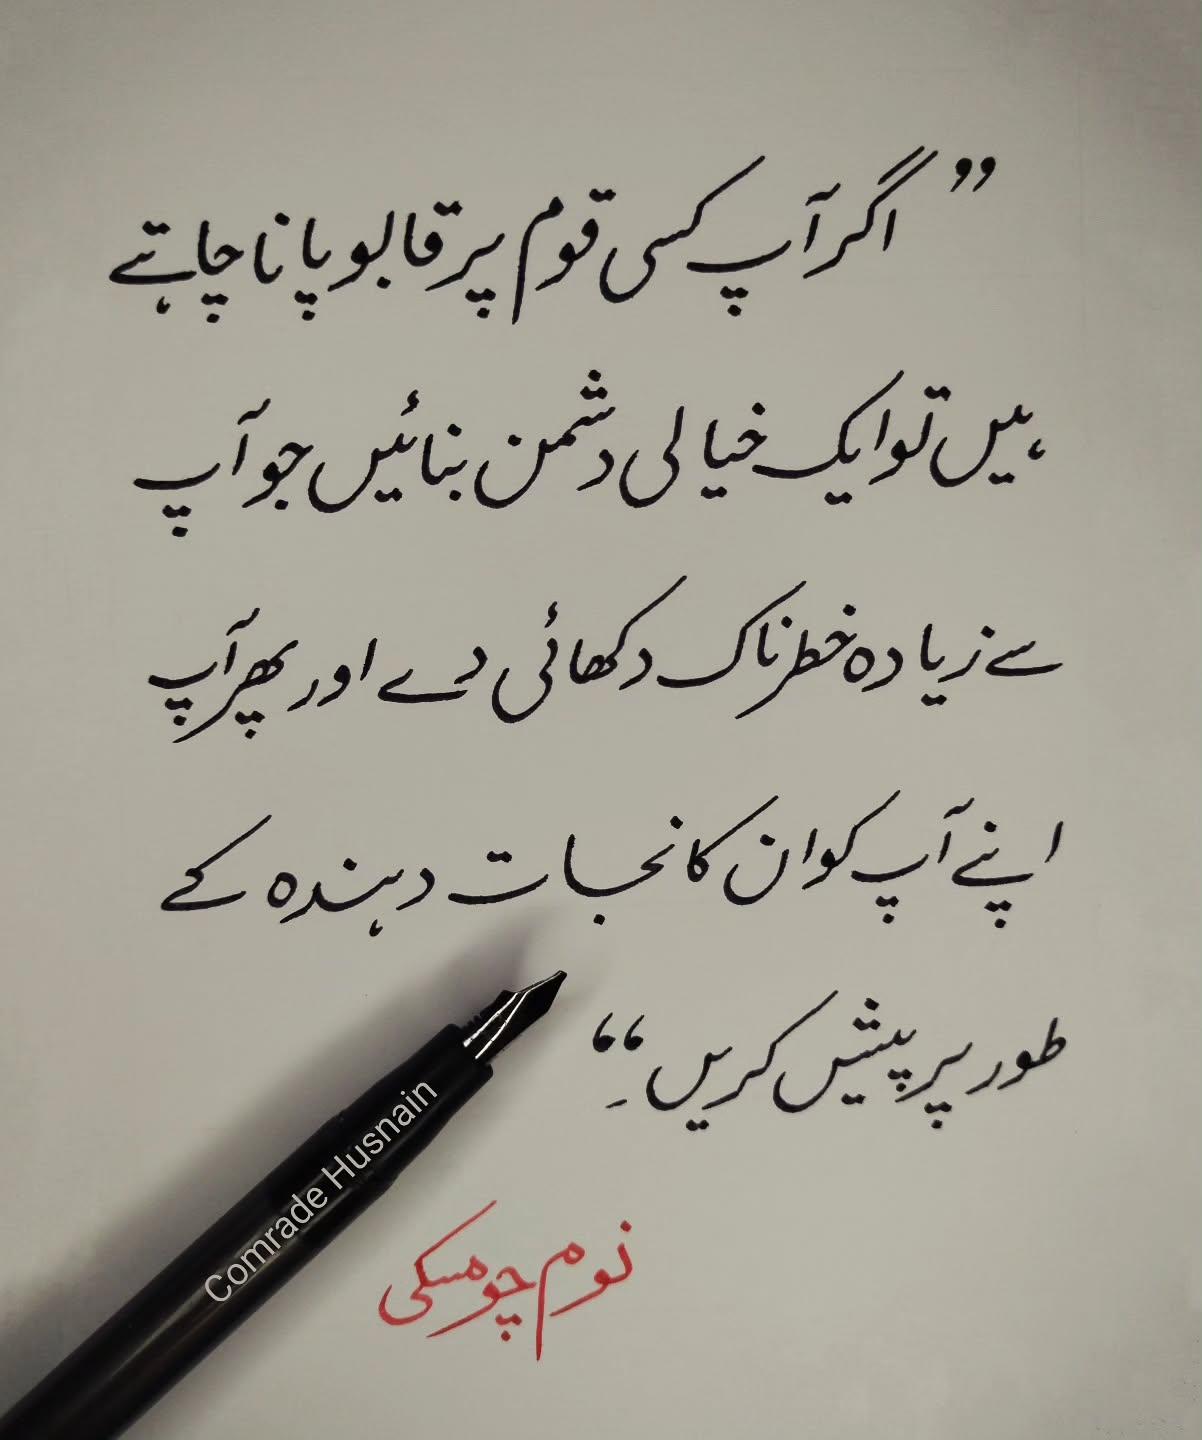 ” اگر آپ کسی قوم پر قابو پانا چاہتے
ہیں تو ایک خیالی دشمن بنائیں جو آپ
سے زیادہ خطرناک دکھائی دے اور پھر آپ
اپنے آپ کو ان کا نجات دہندہ کے
طور پر پیش کریں۔“
نوم چومسکی
Comrade Husnain